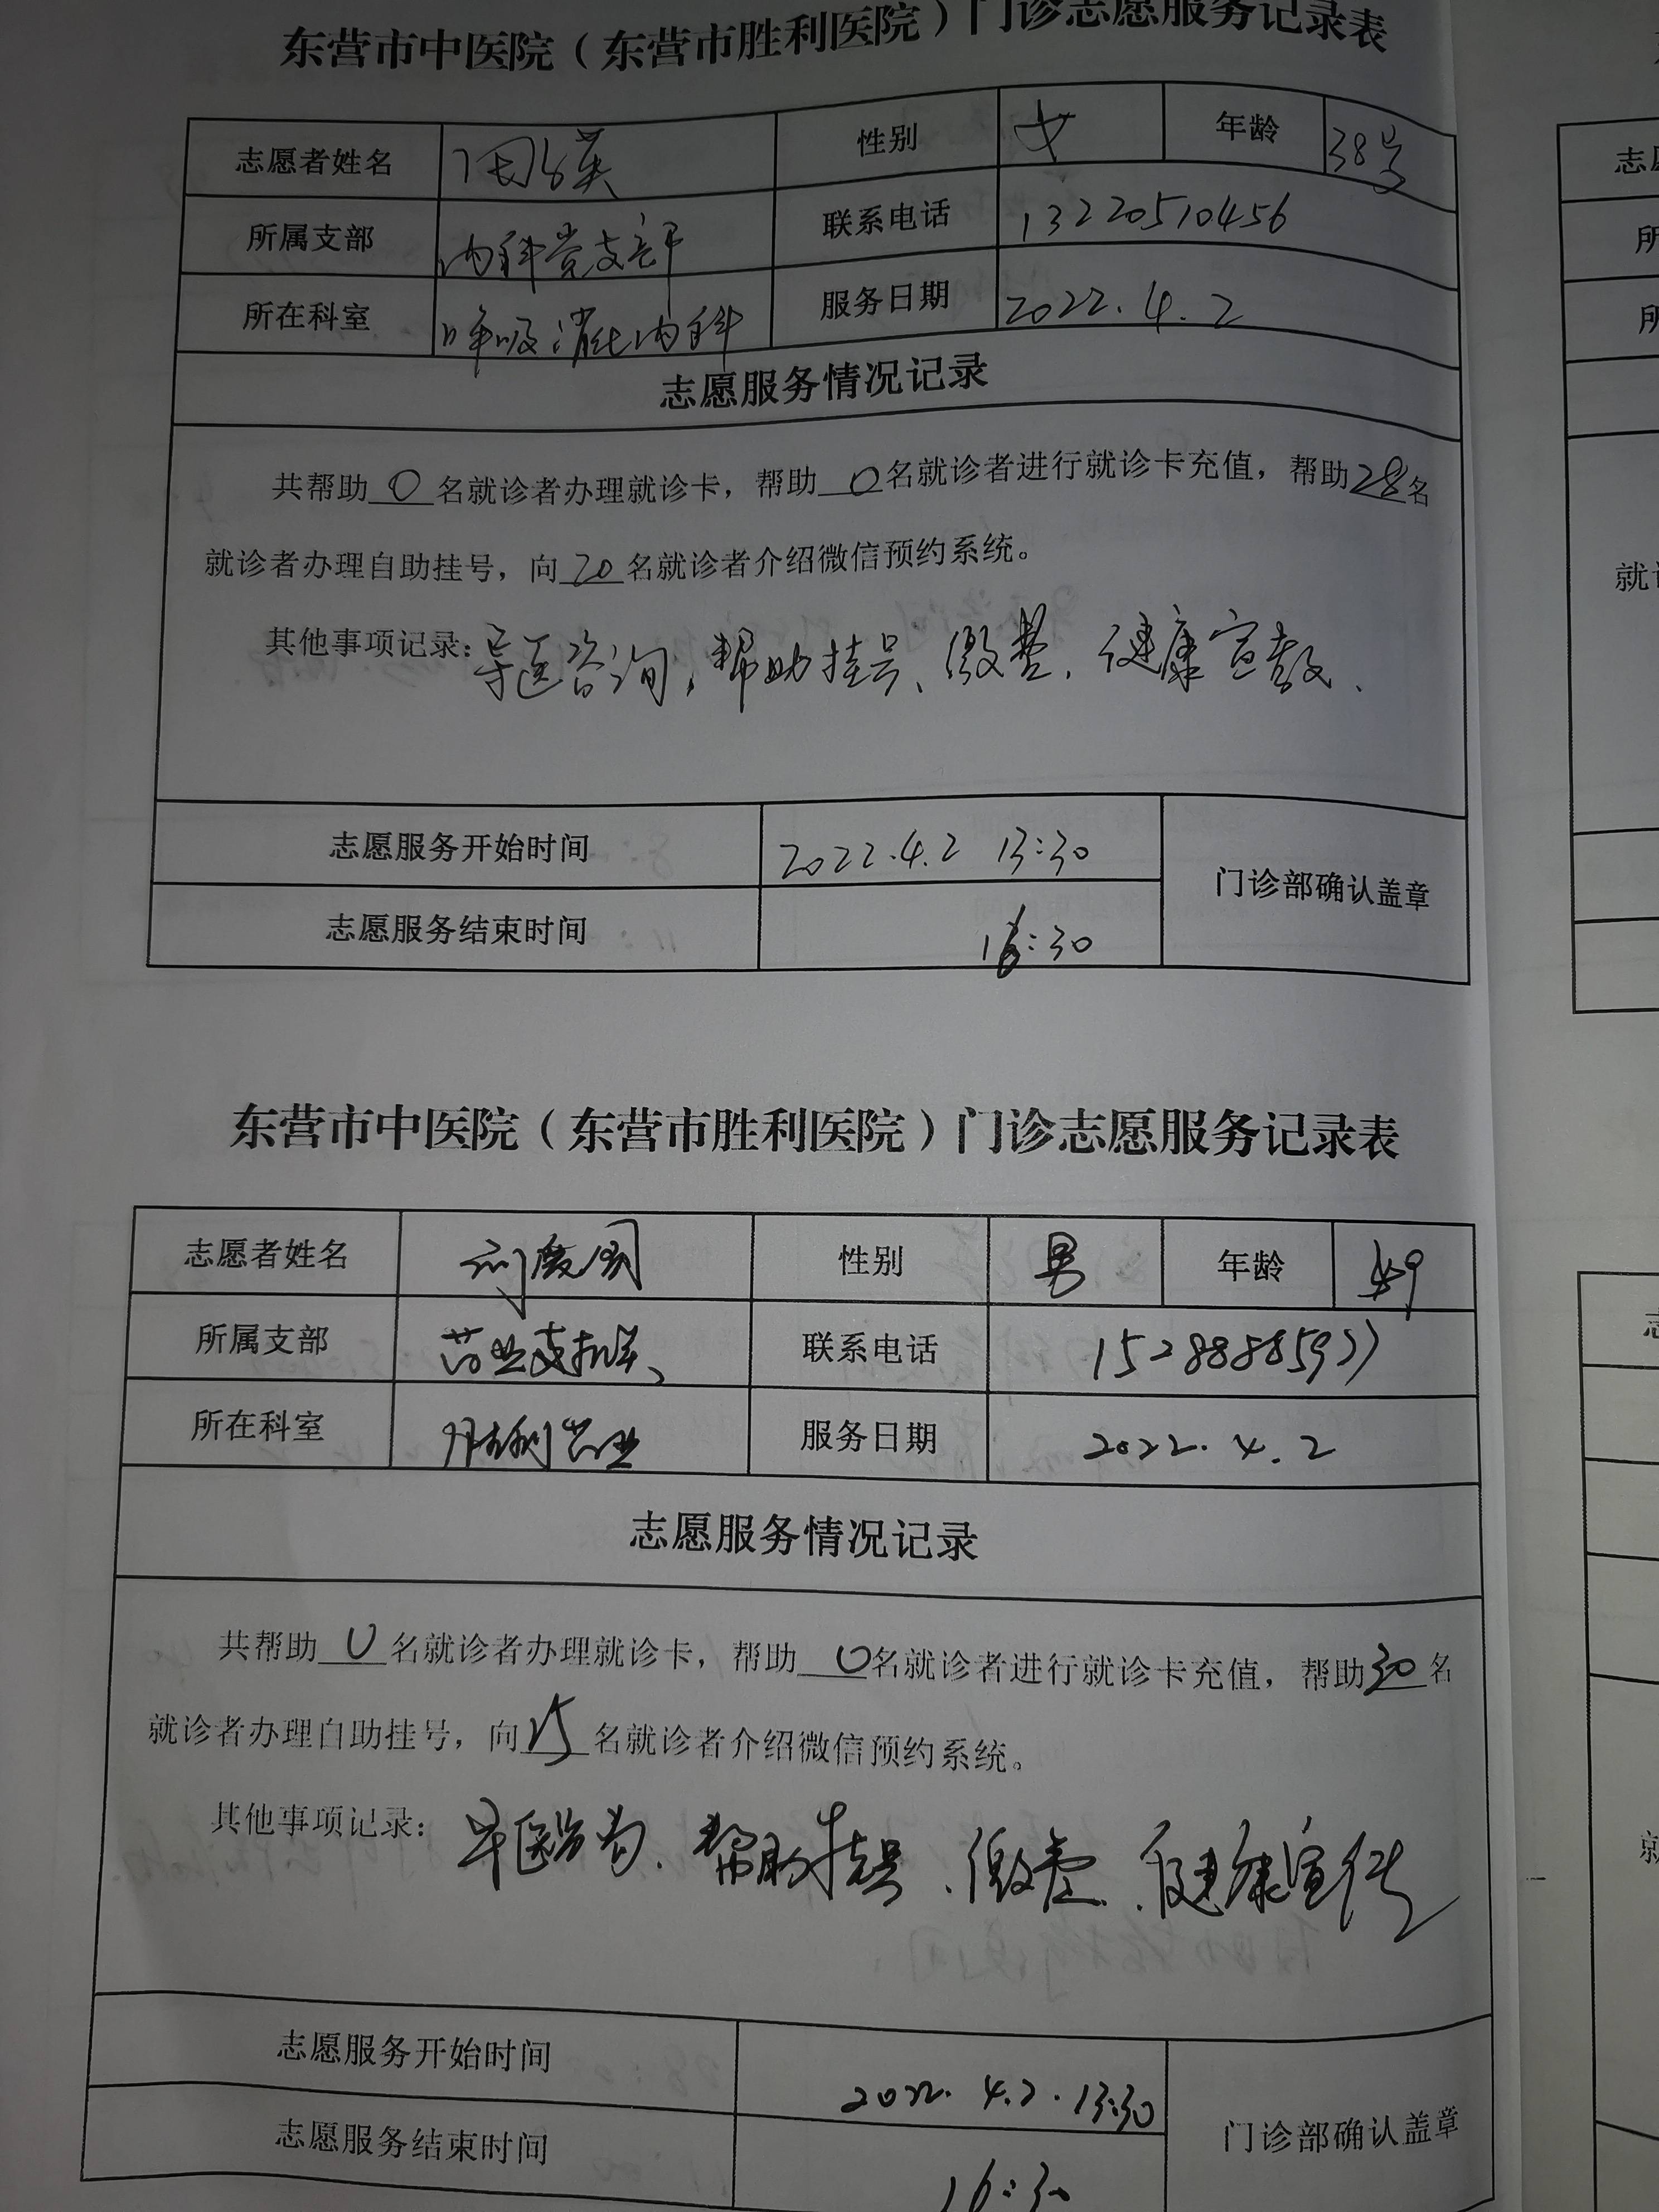 东营市中医院（东营市胜利医院）门诊志愿服务记录表
志愿者姓名 性别 女 年龄 38岁
所属支部 内科党支部 联系电话 13220510456
所在科室 呼吸消化内科 服务日期 2022.4.2
志愿服务情况记录
共帮助 0 名就诊者办理就诊卡，帮助 0 名就诊者进行就诊卡充值，帮助 28 名
就诊者办理自助挂号，向 20 名就诊者介绍微信预约系统。
其他事项记录：导医咨询，帮助挂号、缴费，健康宣教、
志愿服务开始时间 2022.4.2 13:30
门诊部确认盖章
志愿服务结束时间 16:30
东营市中医院（东营市胜利医院）门诊志愿服务记录表
志愿者姓名 性别 男 年龄
所属支部 联系电话
所在科室 胜利药业 服务日期 2022.4.2
志愿服务情况记录
共帮助 0 名就诊者办理就诊卡，帮助 0 名就诊者进行就诊卡充值，帮助 30 名
就诊者办理自助挂号，向 名就诊者介绍微信预约系统。
其他事项记录：导医咨询、帮助挂号、缴费、健康宣传
志愿服务开始时间 2022.4.2.13:30
门诊部确认盖章
志愿服务结束时间 16:30